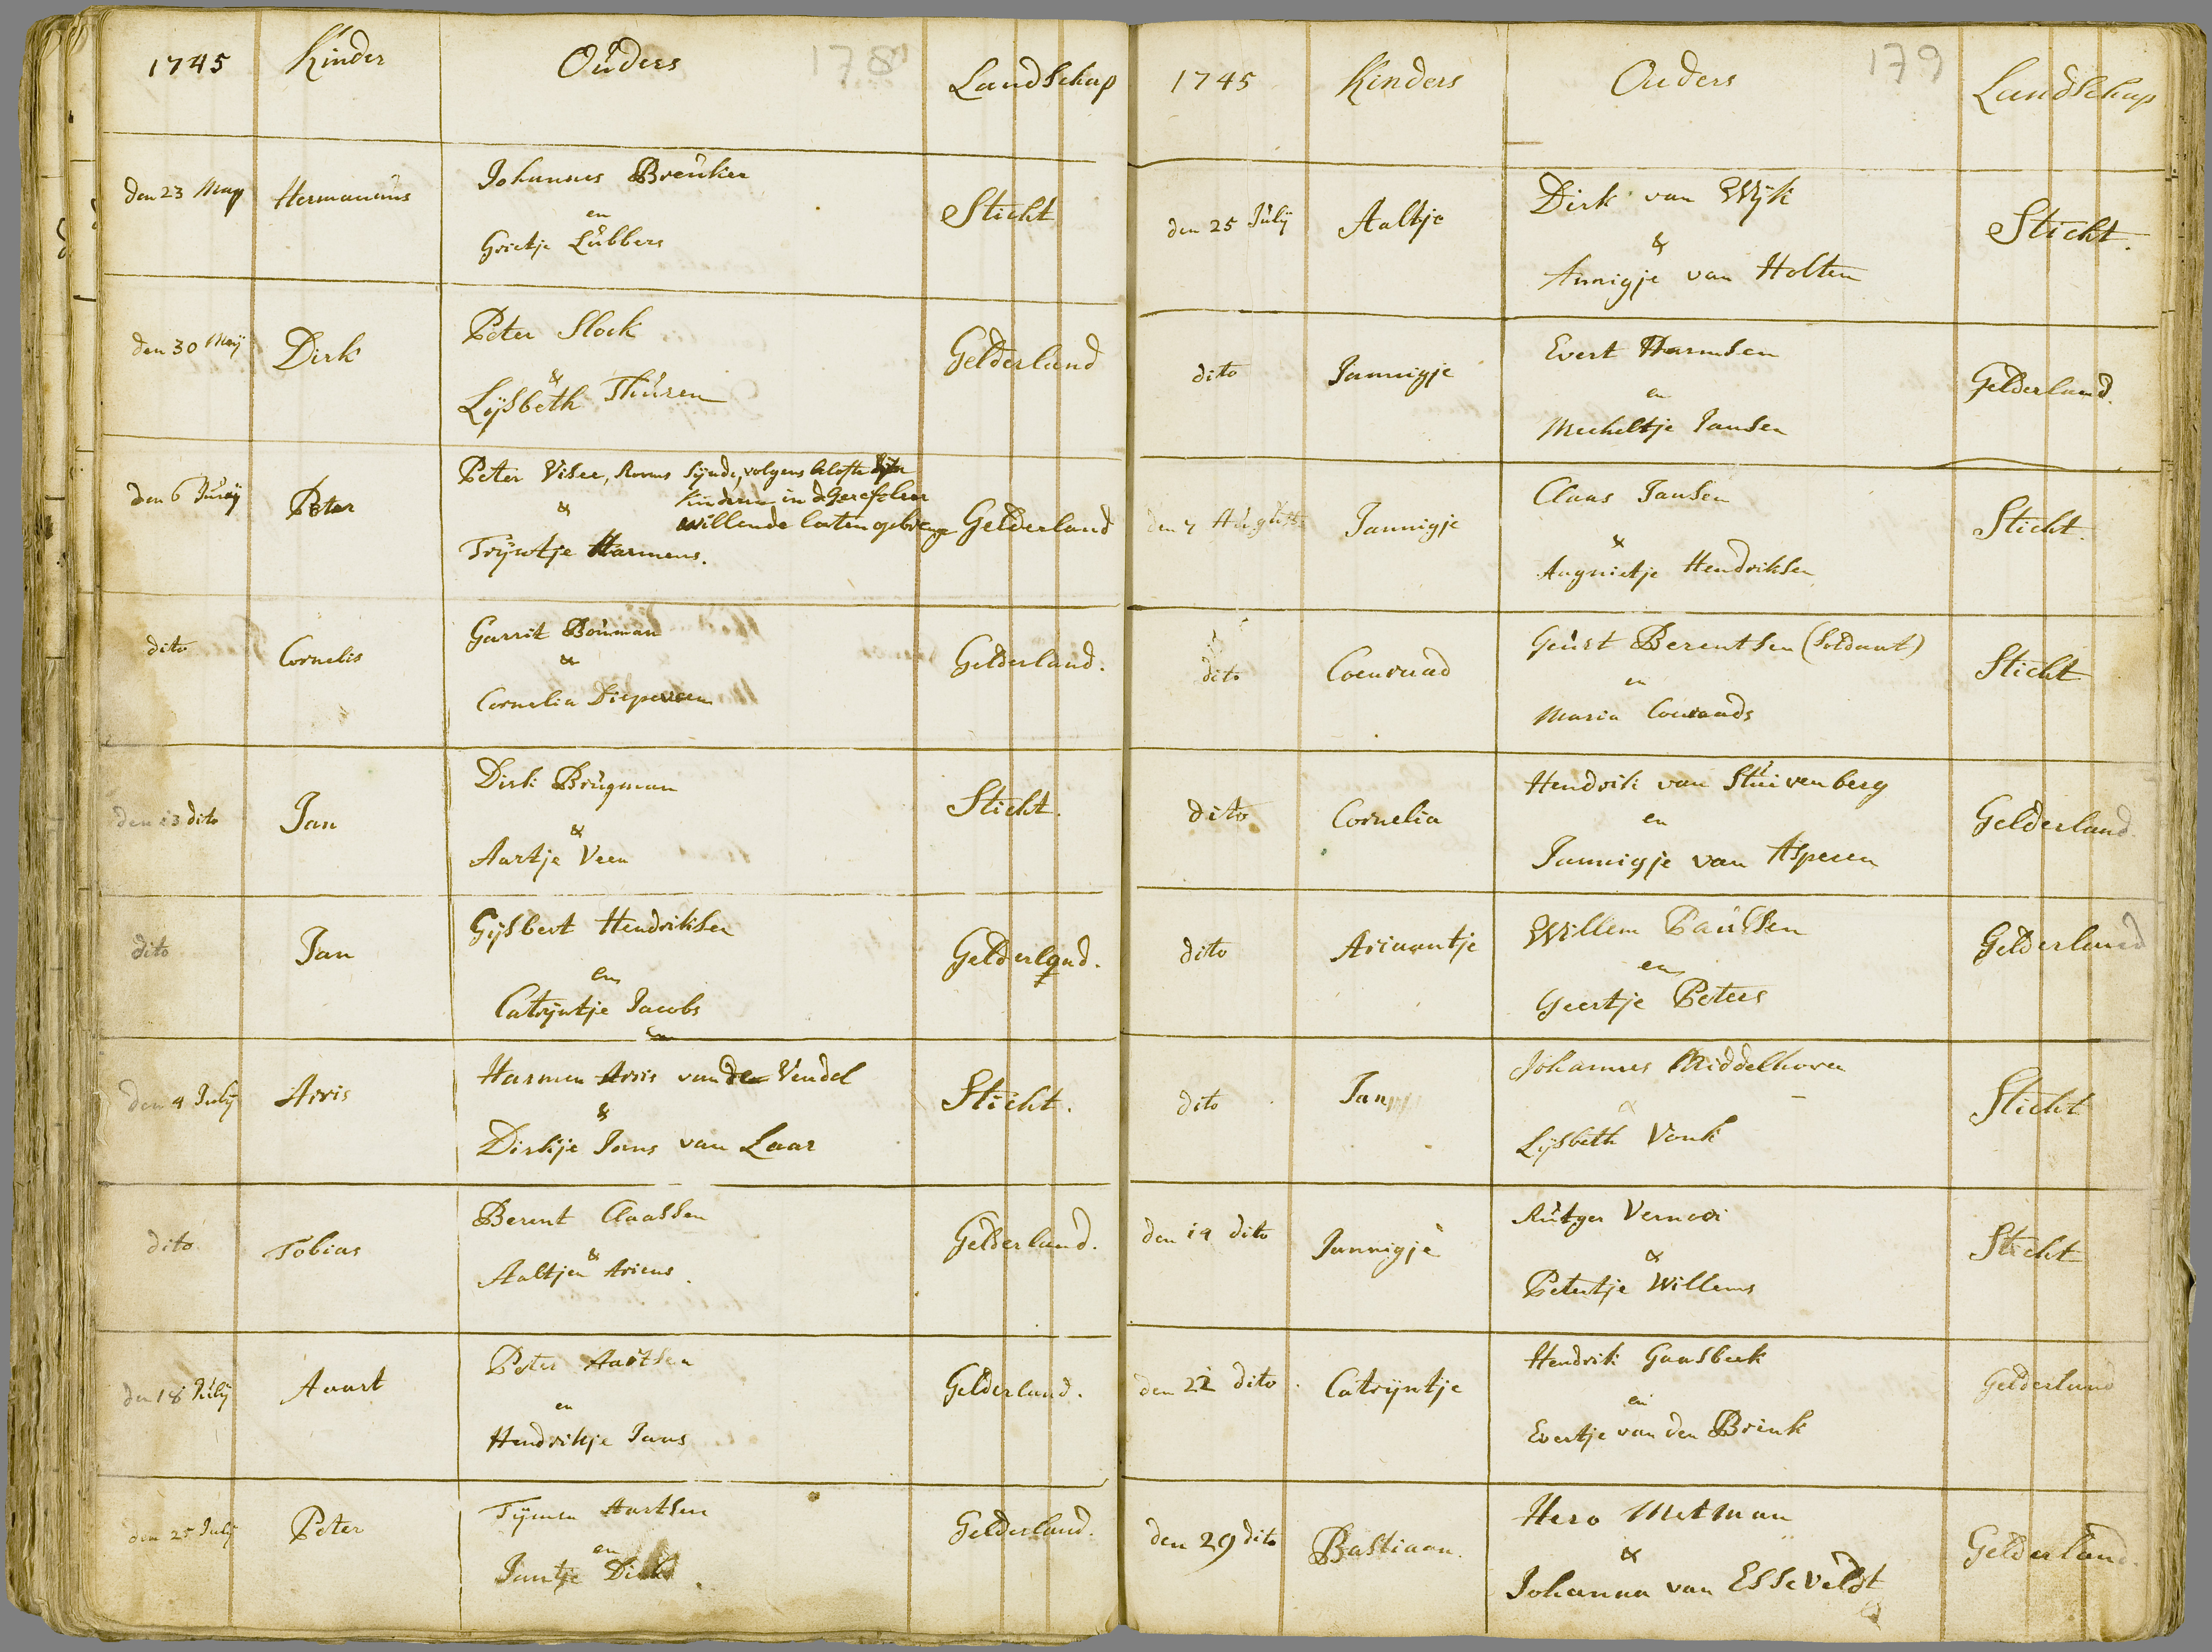 1745 Kinder Ouders 178 Landschap
den 23 Maij Hermanus Johannes Breuker
en
Grietje Lubbers
Sticht
den 30 Maij Dirk Peter Slock
&
Lijsbeth Thuren
Gelderland
den 6 Junij Peter Peter Viser, Rooms sijnde, volgens belofte sijn
kinderen in de Gerefor
& willende laten gebrenge
Trijntje Harmens.
Gelderland
dito Cornelis Garrit Bouman
&
Cornelia Diepeveen
Gelderland.
den 13 dito Jan Dirk Brugman
&
Aartje Veen
Sticht.
dito Jan Gijsbert Hendriksen
en
Catrijntje Jacobs
Gelderland.
den 4 Julij Aris Harmen Arris van de Vendel
&
Dirkje Jans van Laar
Sticht.
dito Tobias Berent Claassen
&
Aaltjen Ariens.
Gelderland.
den 18 Julij Aaart Peter Aartsen
en
Hendrikje Jans
Gelderland.
den 25 Julij Peter Tijmen Aartsen
en
Jantje Dirks.
Gelderland.
1745 Kinders Ouders 179 Landschap
den 25 Julij Aaltje Dirk van Wijk
&
Annigje van Holten
Sticht.
dito Jannigje Evert Harmsen
en
Mecheltje Jansen
Gelderland.
den 7 Augusts Jannigje Claas Jansen
&
Angnietje Hendriksen
Sticht.
dito Coenraad Geurt Berentsen (Soldaat)
en
Maria Coenraads
Sticht
dito Cornelia Hendrik van Stuivenberg
en
Jannigje van Asperen
Gelderland.
dito Ariaantje Willem Paulsen
en
Geertje Peters
Gelderland
dito Jan Johannes Middelhoven
&
Lijsbeth Vonk
Sticht
den 19 dito Jannigje Rutger Vernooi
&
Petertje Willems
Sticht
den 22 dito Catrijntje Hendrik Gaasbeek
en
Evertje van den Brink
Gelderland
den 29 dito Bastiaan. Hero Metman
&
Johanna van Esseveldt
Gelderland.